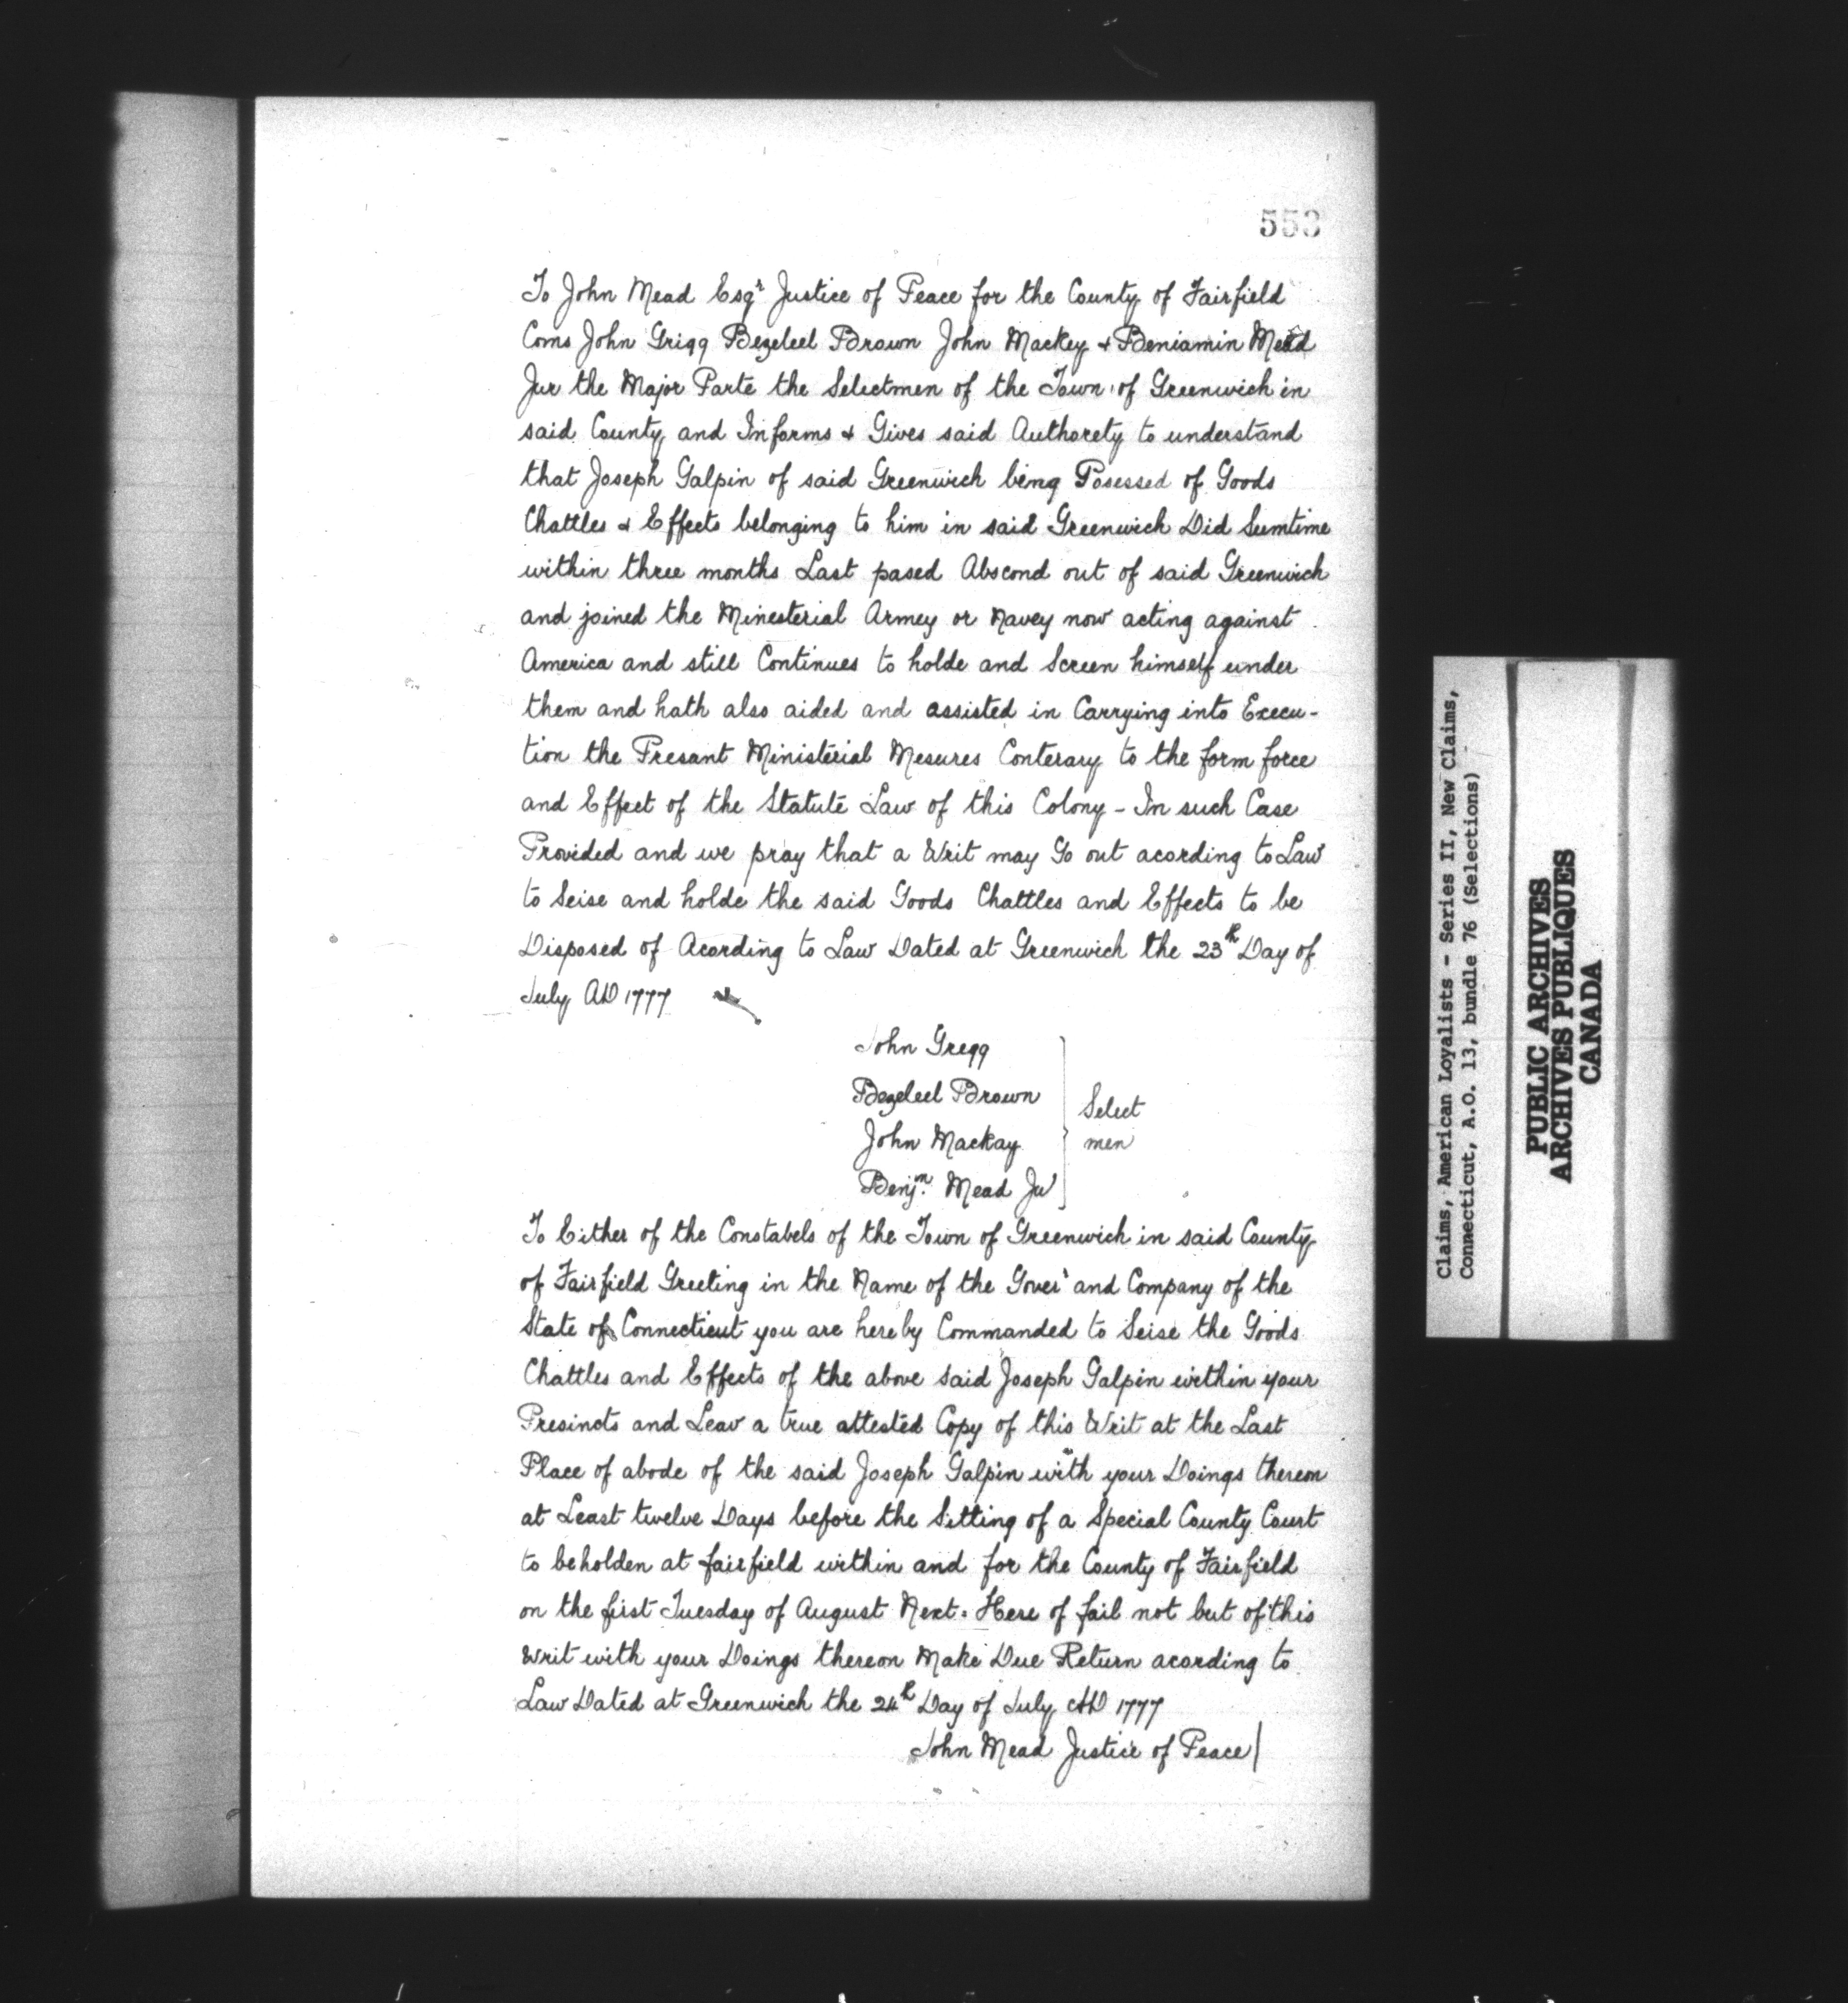 553
To John Mead Esqr Justice of Peace for the County of Fairfield
Coms John Grigg Bezeleel Brown John Mackey + Beniamin Mead
Jur the Major Parte the Selectmen of the Town of Greenwich in
said County and Informs + Gives said Authorety to understand
that Joseph Galpin of said Greenwich being Posessed of Goods
Chattles & Effects belonging to him in said Greenwich Did Sumtime
within three months Last pased Abscond out of said Greenwich
and joined the Minesterial Armey or Navey now acting against
America and still Continues to holde and Screen himself under
them and hath also aided and assisted in Carrying into Execu-
tion the Presant Ministerial Mesures Conterary to the form force
and Effect of the Statute Law of this Colony - In such Case
Provided and we pray that a Writ may Go out acording to Law
to Seise and holde the said Goods Chattles and Effects to be
Disposed of Acording to Law Dated at Greenwich the 23th Day of
July AD 1777
John Gregg
Bezeleel Brown
John Mackay
Benjm. Mead Jur
Select
men
To Either of the Constabels of the Town of Greenwich in said County
of Fairfield Greeting in the Name of the Goverr and Company of the
State of Connecticut you are hereby Commanded to Seise the Goods
Chattles and Effects of the above said Joseph Galpin within your
Presincts and Leav a true attested Copy of this Writ at the Last
Place of abode of the said Joseph Galpin with your Doings thereon
at Least twelve Days before the Sitting of a Special County Court
to beholden at fairfield within and for the County of Fairfield
on the first Tuesday of August Next. Here of fail not but of this
Writ with your Doings thereon Make Due Return acording to
Law Dated at Greenwich the 24th Day of July AD 1777
John Mead Justice of Peace
Claims, American Loyalists - Series II, New Claims,
Connecticut, A.O. 13, bundle 76 (Selections)
PUBLIC ARCHIVES
ARCHIVES PUBLIQUES
CANADA